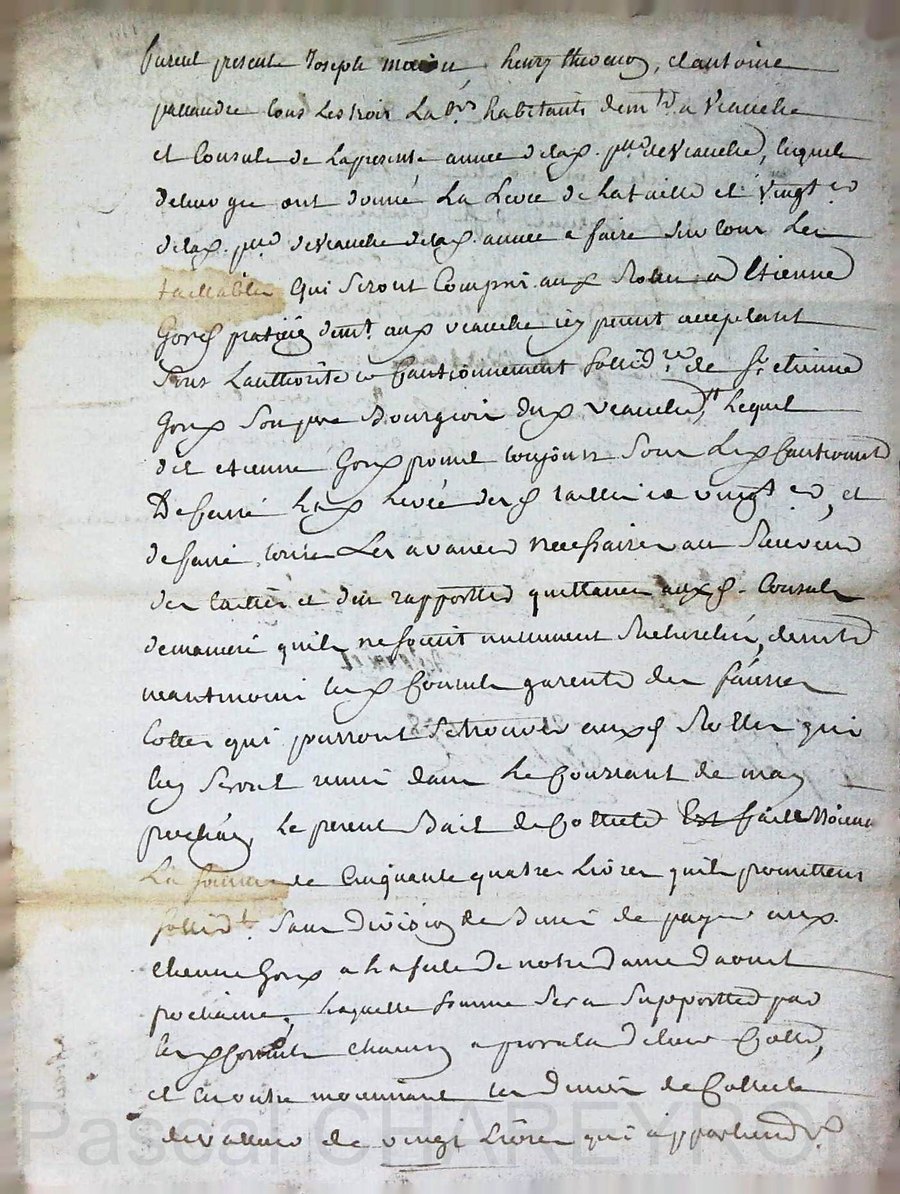 furent presents Joseph henry thevenon, et antoine
tous Les trois Lab.rs habitants dem.td a Veauche
et Consuls de La presente année de lad. p.sse de Veauche, lesquels
de leur gré ont donné La Levée de La taille et vingt.e
de lad. p.sse de Veauche de lad. année a faire sur tous Les
taillables qui seront Compris aux Roles a Etienne
praticien dem.t aud veauche icy pnt acceptant
sous L'authorité et Cautionnement sollid.re de s.r etienne
son pere Bourgeois dud veauche, Lequel
dit etienne promet toujours sous Led Cautionnt
De faire Lad Levée desd tailles et vingt.e, et
de faire toutes Les avances necessaires au Receveur
des tailles et d'en rapporter quittance auxd. Consuls
de maniere qu'ils ne soient nullement Recherchés,
neantmoins lesd Consuls garents des fausses
Cottes qui pourront se trouver auxd Rolles qui
luy seront remis dans Le Courrant de may
prochain, Le present Bail de Collecte Est fait Moienant
La somme de Cinquante quatre Livres qu'ils promettent
sollid.t sans Division de payer aud.
Etienne a La feste de notre Dame Daoust
prochaine, Laquelle somme sera supportée par
lesd Consuls chacun a prorata de leur Cotte,
et en outre moiennant les Deniers de Collecte
de vingt Livres qui appartiendr.
Pascal CHAREYRON